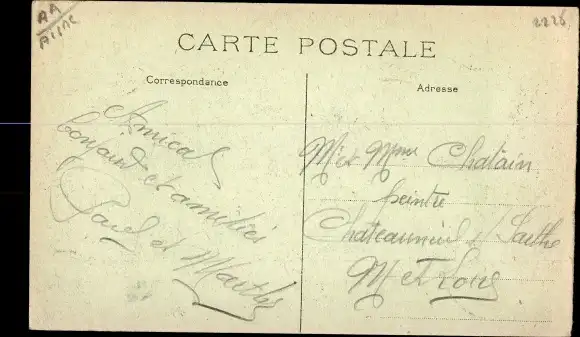 AA
Aisne
2226
CARTE POSTALE
Correspondance
Adresse
Amical
bonjour et amitiés
Paul et Marthe
Mr et Mme Chatain
peintre
Chateauneuf s/ Sarthe
M et Loire